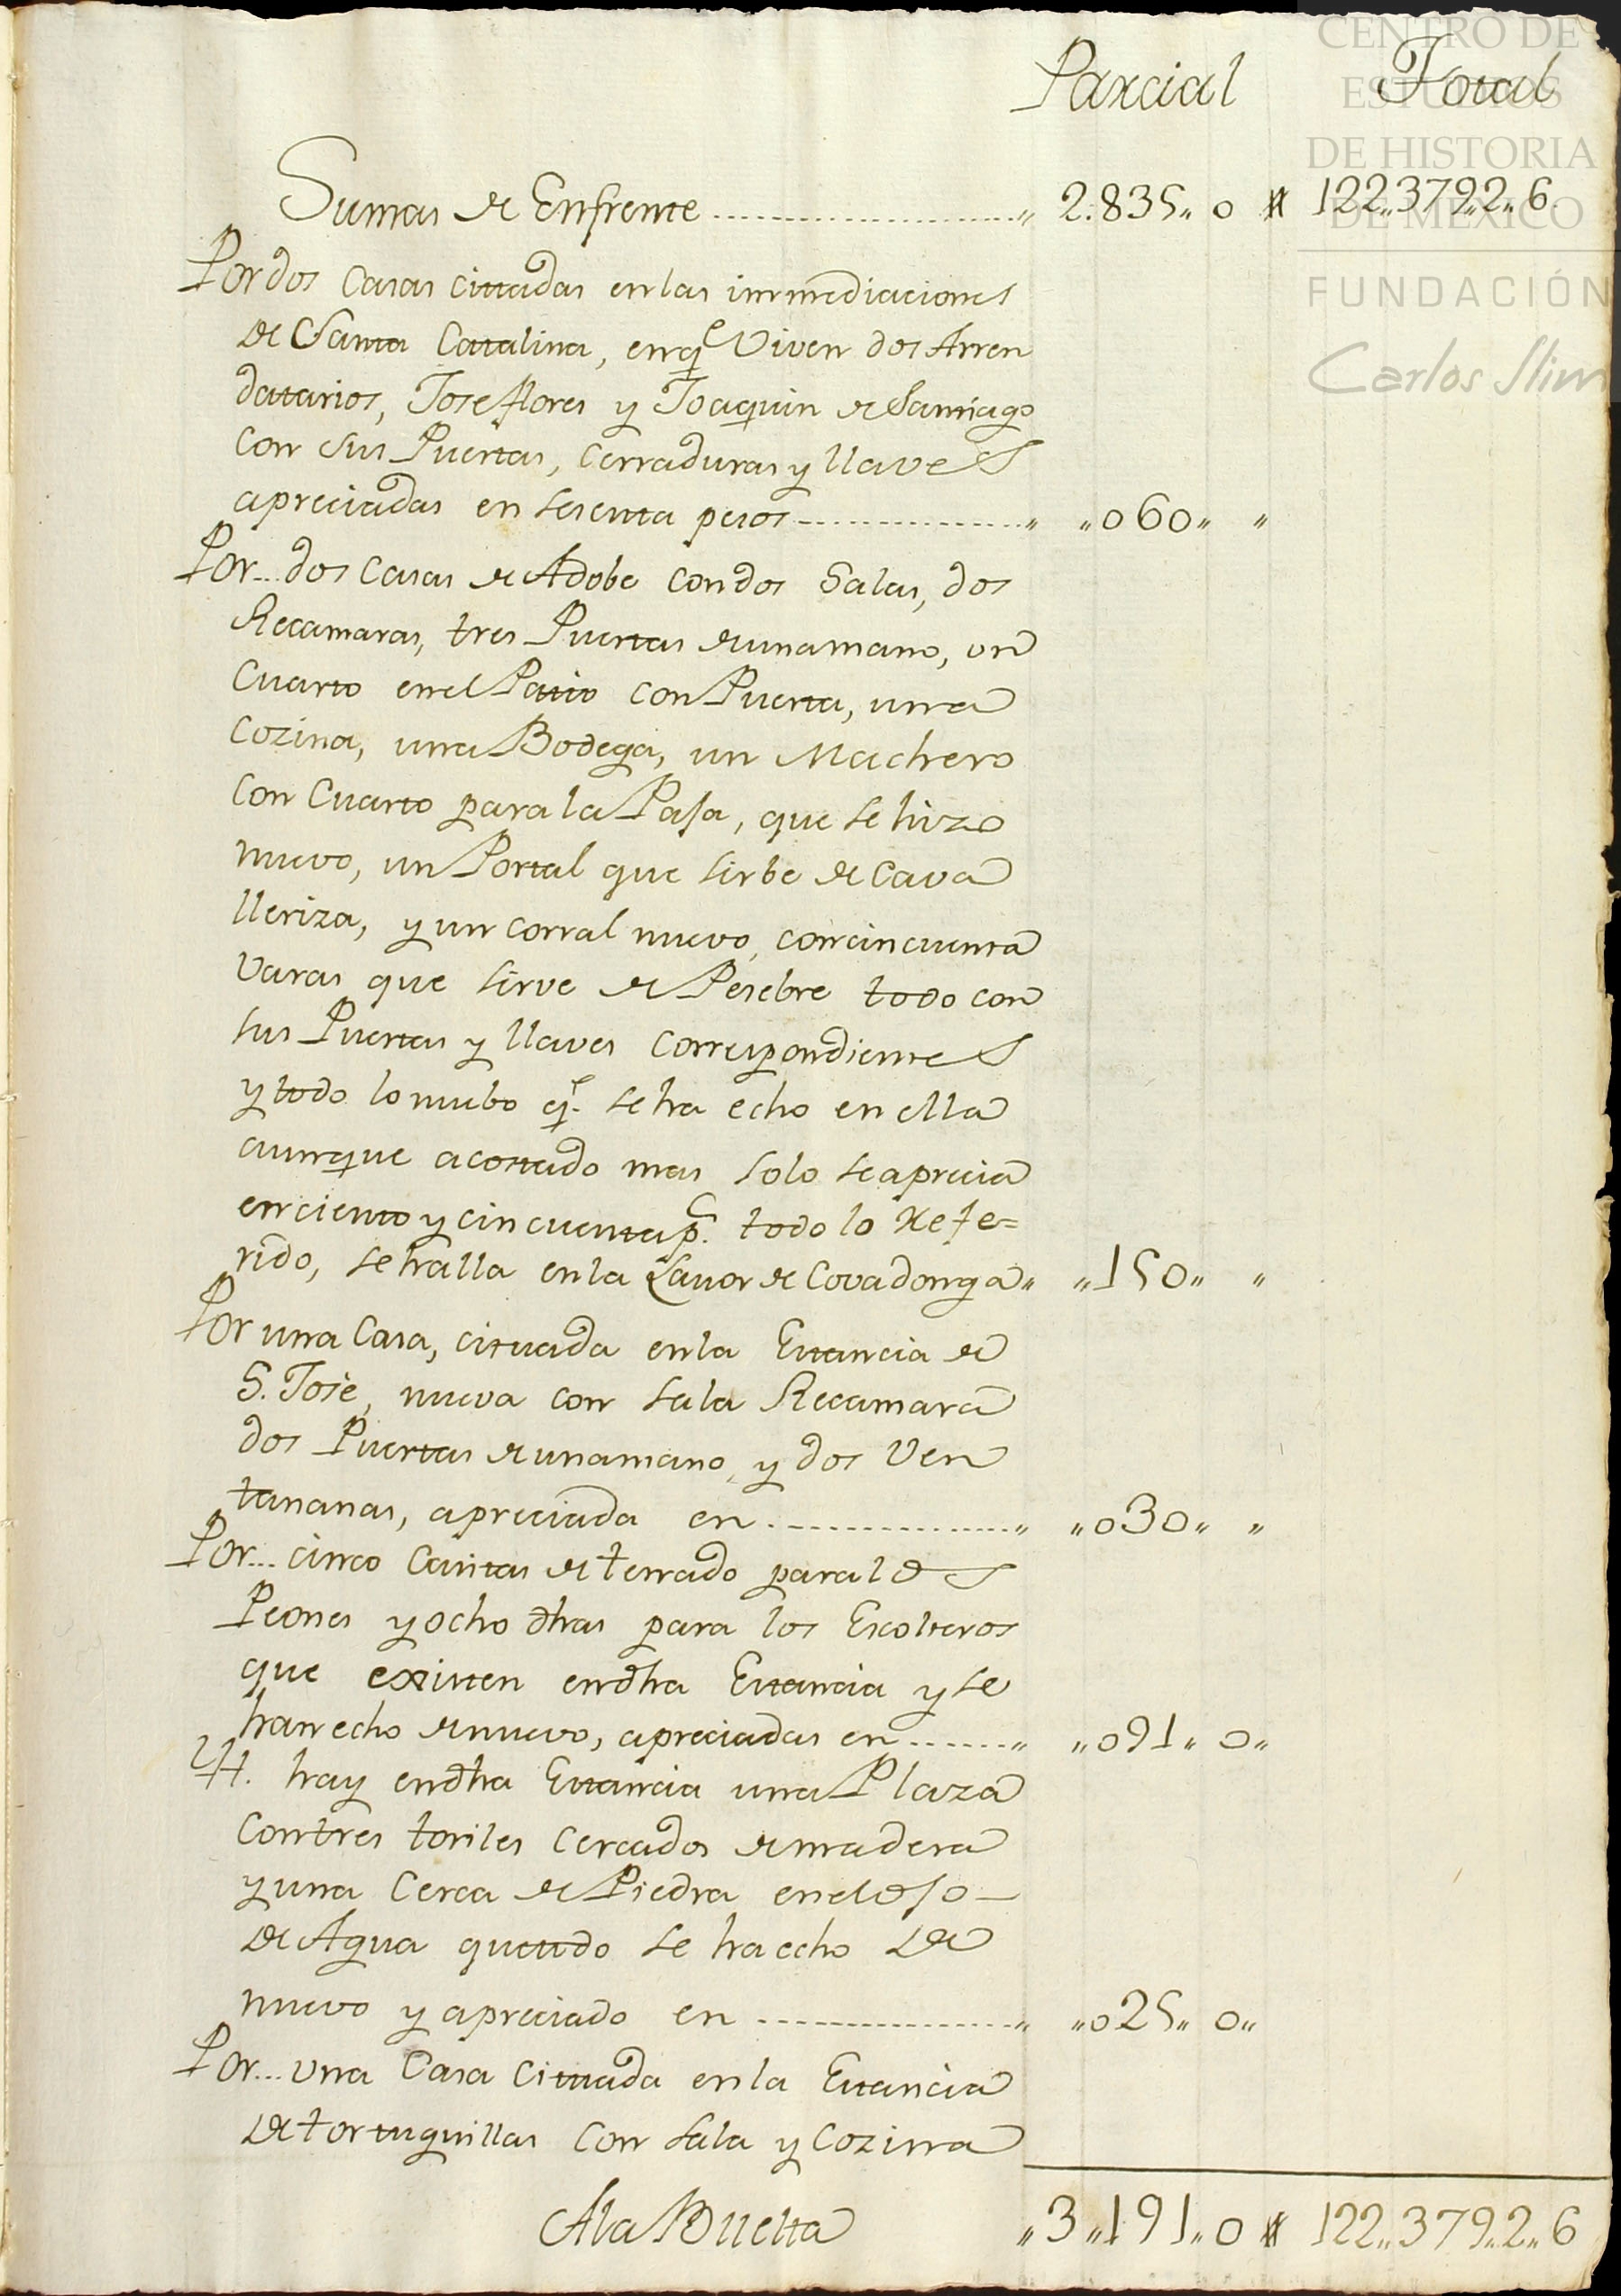 CENTRO DE
ESTUDIOS
DE HISTORIA
DE MÉXICO
FUNDACIÓN
Carlos Slim
Parcial Total
Sumas de Enfrente 2.835,, 0 122,,379,,2,,6.
Por dos Casas cittadas en las inmmediaciones
de Santa Catalina, en q.e Viven dos Arren
datarios, Jose flores y Joaquin de Santiago
con sus Puertas, Cerraduras y llaves
apreciadas en sesenta pesos ,, ,,060,, ,,
Por... dos Casas de Adobe con dos Salas, dos
Recamaras, tres Puertas de una mano, un
Cuarto en el Patio con Puerta, una
Cozina, una Bodega, un Machero
con Cuarto para la Paja, que se hizo
nuevo, un Portal que sirbe de Cava
lleriza, y un corral nuevo, con cincuenta
varas que sirve de Pesebre todo con
sus Puertas y llaves correspondientes
y todo lo nuebo q.e se ha echo en ella
aunque a costado mas solo se aprecia
en ciento y cincuenta p.s todo lo Refe=
rido, se halla en la Lavor de Covadonga,, ,,150,, ,,
Por una Casa, cituada en la Estancia de
S. Jose, nueva con sala Recamara
dos Puertas de una mano, y dos Ven
tananas, apreciada en ,, ,,030,, ,,
Por... cinco Casitas de terrado para los
Peones y ocho dhas para los Escoteros
que existen en dha Estancia y se
han echo de nuevo, apreciadas en ,, ,,091,, 0,,
Yt. hay en dha Estancia una Plaza
con tres toriles cercados de madera
y una Cerca de Piedra en el Ojo
de Agua que todo se ha echo de
nuevo y apreciado en ,, ,,025,, 0,,
Por... una Casa Cituada en la Estancia
de tortuguillas con sala y Cozina
A la Buelta ,,3,,191,, 0 122,,379,,2,,6